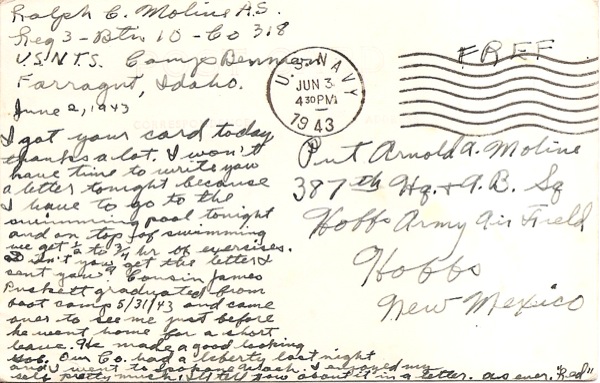 Ralph C. Moline A.S.
Reg 3 - Btn 10 - Co 318
U.S.N.T.S. Camp Bennion
Farragut, Idaho.
June 2, 1943
I got your card today
thanks a lot. I won't
have time to write you
a letter tonight because
I have to go to the
swimming pool tonight
and on top of swimming
we get 1/2 to 3/4 hr of exersises.
Didn't you get the letter I
sent you? Cousin James
Puskett graduated from
boot camp 5/31/43 and came
over to see me just before
he went home for a short
leave. He made a good looking
gob. Our Co. had a liberty last night
and I went to Spokane Wash. I enjoyed my
self pretty much. I'll tell you about it in a letter. as ever, "Red"
U.S. NAVY
JUN 3
4 30 PM
1943
FREE
Pvt Arnold A. Moline
387th Hq. & A.B. Sq
Hobbs Army Air Field
Hobbs
New Mexico